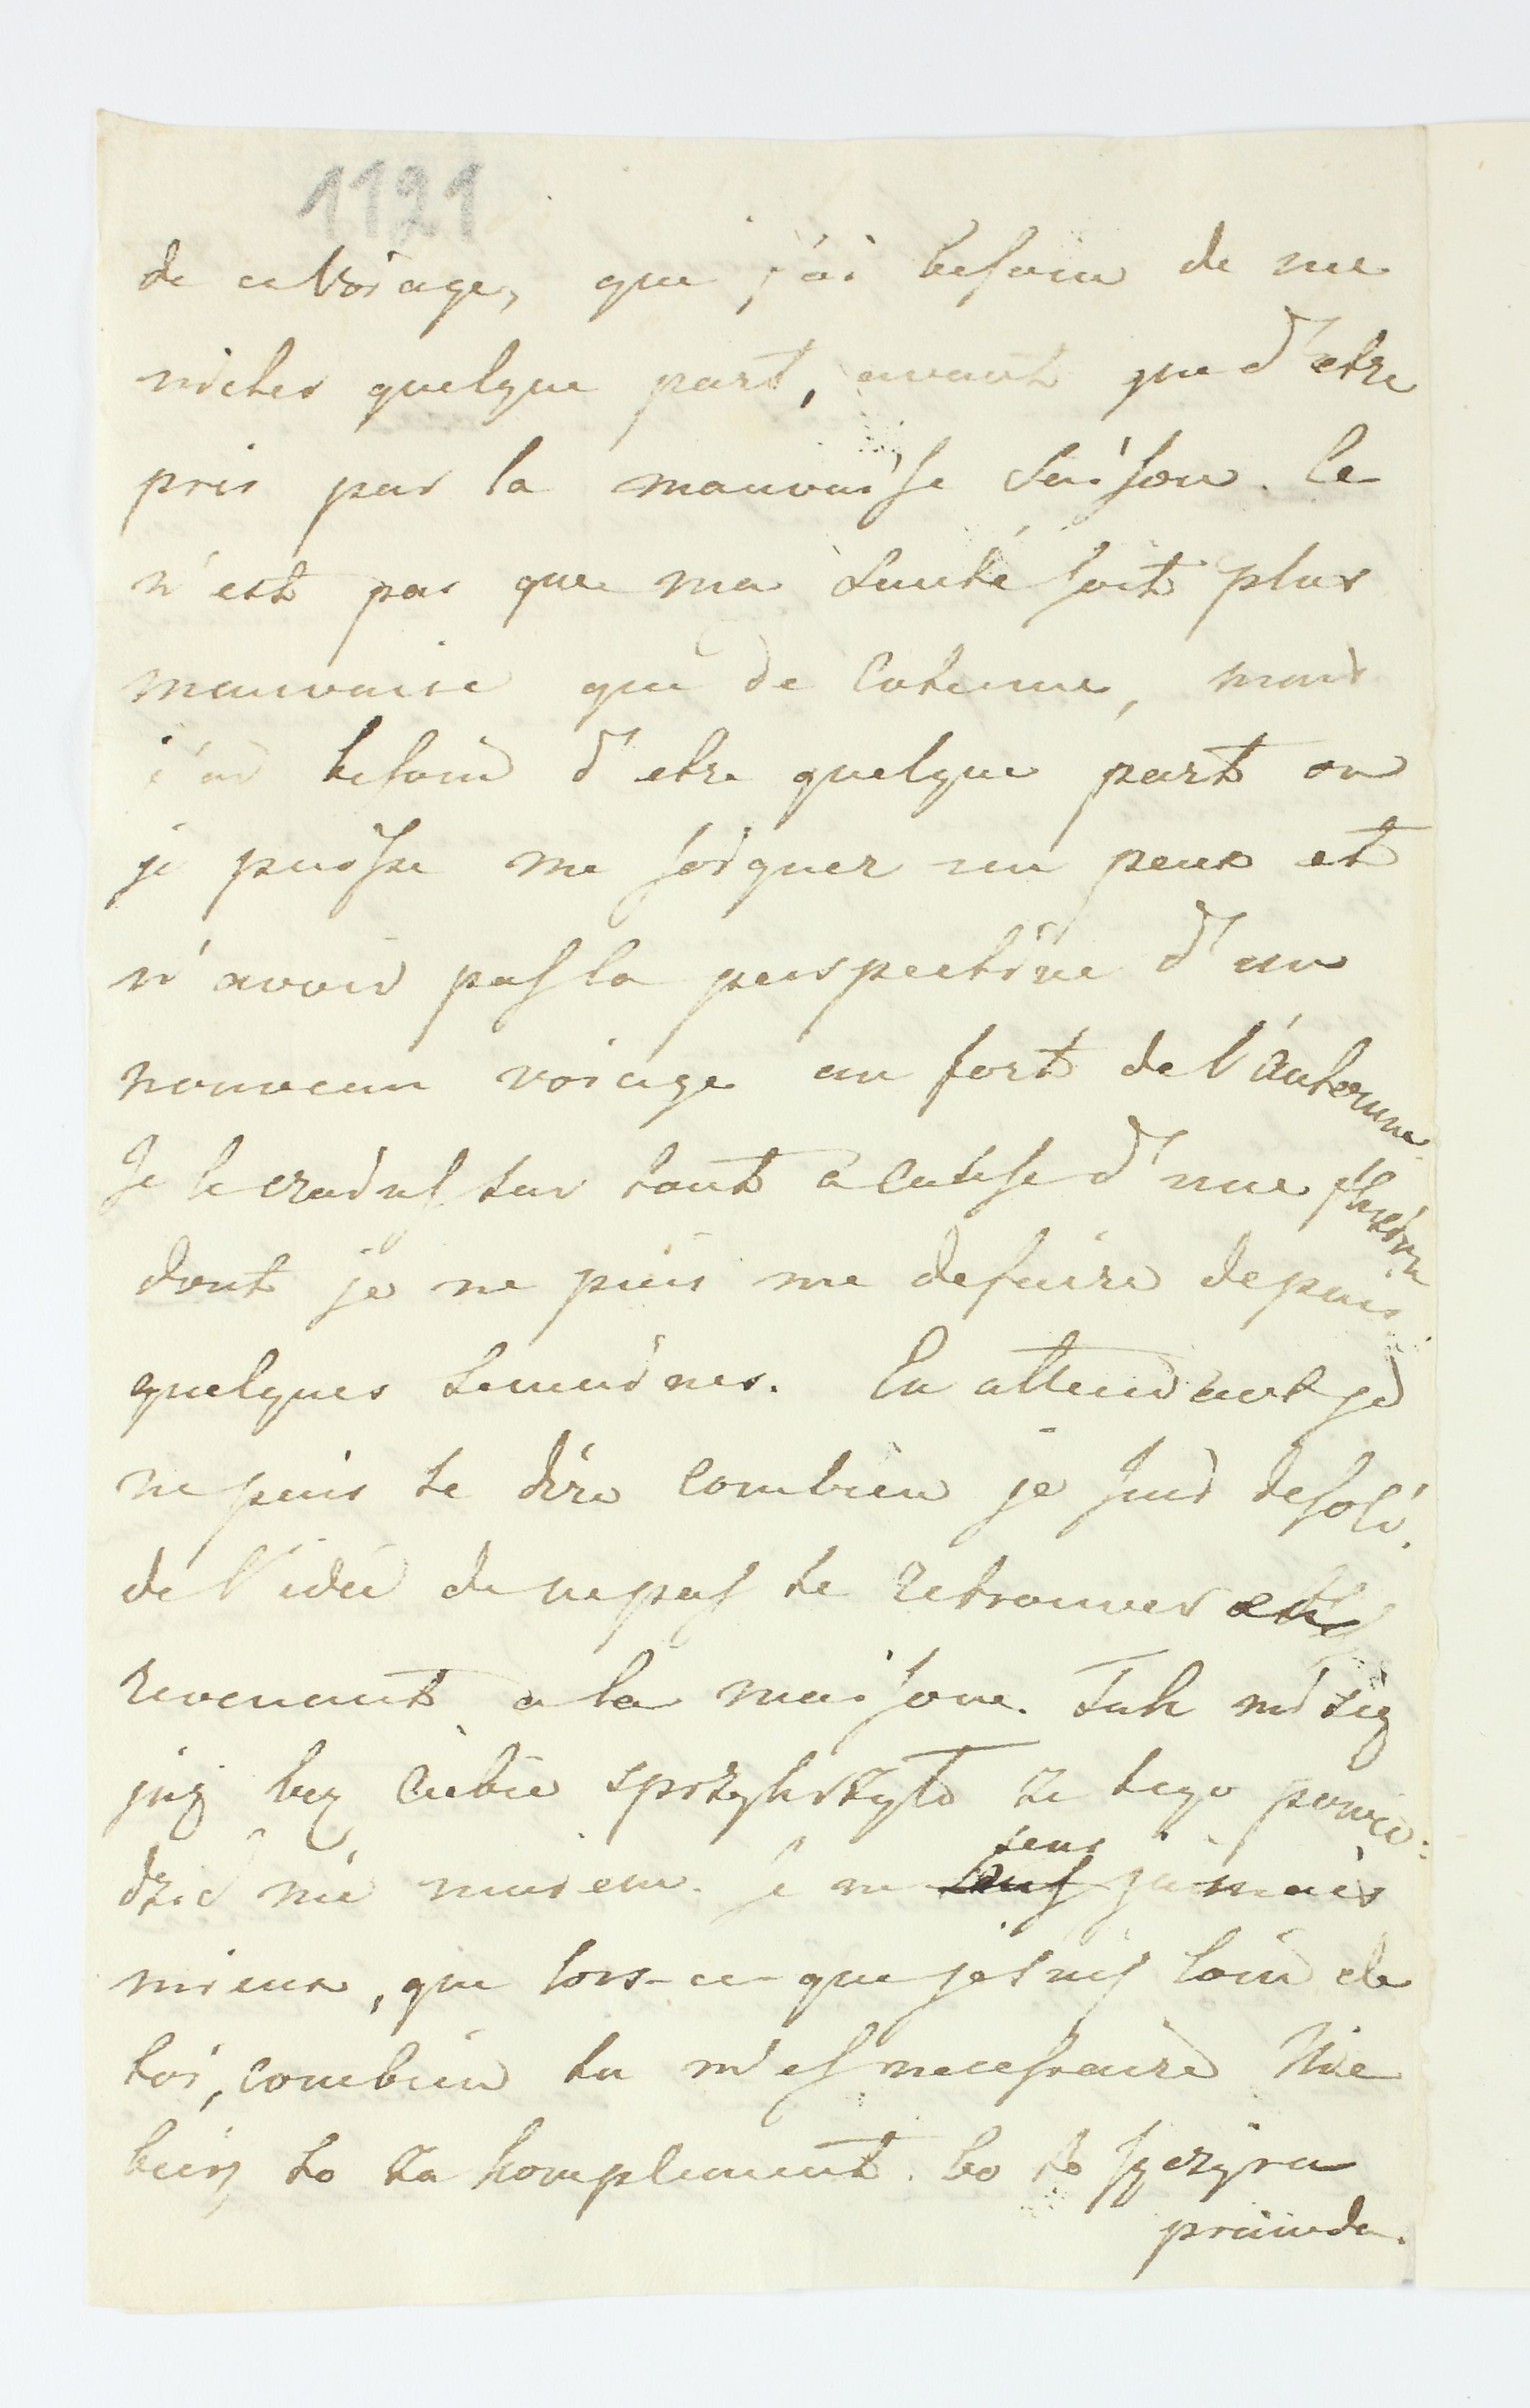 1121
de ce voiage, que j'ai besoin de me
nicher quelque part, avant que d'etre
pris par la mauvaise saison. Ce
n'est pas que ma santé soit plus
mauvaise que de cotume, mais
j'ai besoin d'etre quelque part ou
je puisse me soigner un peux et
n'avoir pas la perspective d'un
nouveau voiage au fort de l'automne.
Je le crains sur tout a cause d'une fluxion
dont je ne puis me defaire depuis
quelques semaines. En attendant je
ne puis te dire combien je suis desolé.
de l'idée de ne pas te retrouver en
revenant a la maison. Tak mi się
już bez Ciebie sprzykrzyło że tego powie:
dzić nie umiem. Je ne sens jamais
sens
mieux, que lors-ce-que je suis loin de
toi, combien tu m'es necessaire Nie
bierz to za komplement. bo to szczyra
prawda.